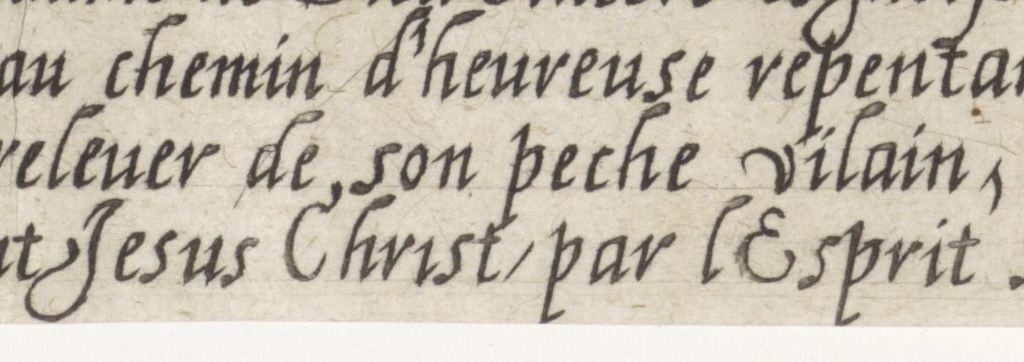 au chemin d'heureuse repentan
releuer de son peche vilain,
nt Jesus Christ, par l Esprit.